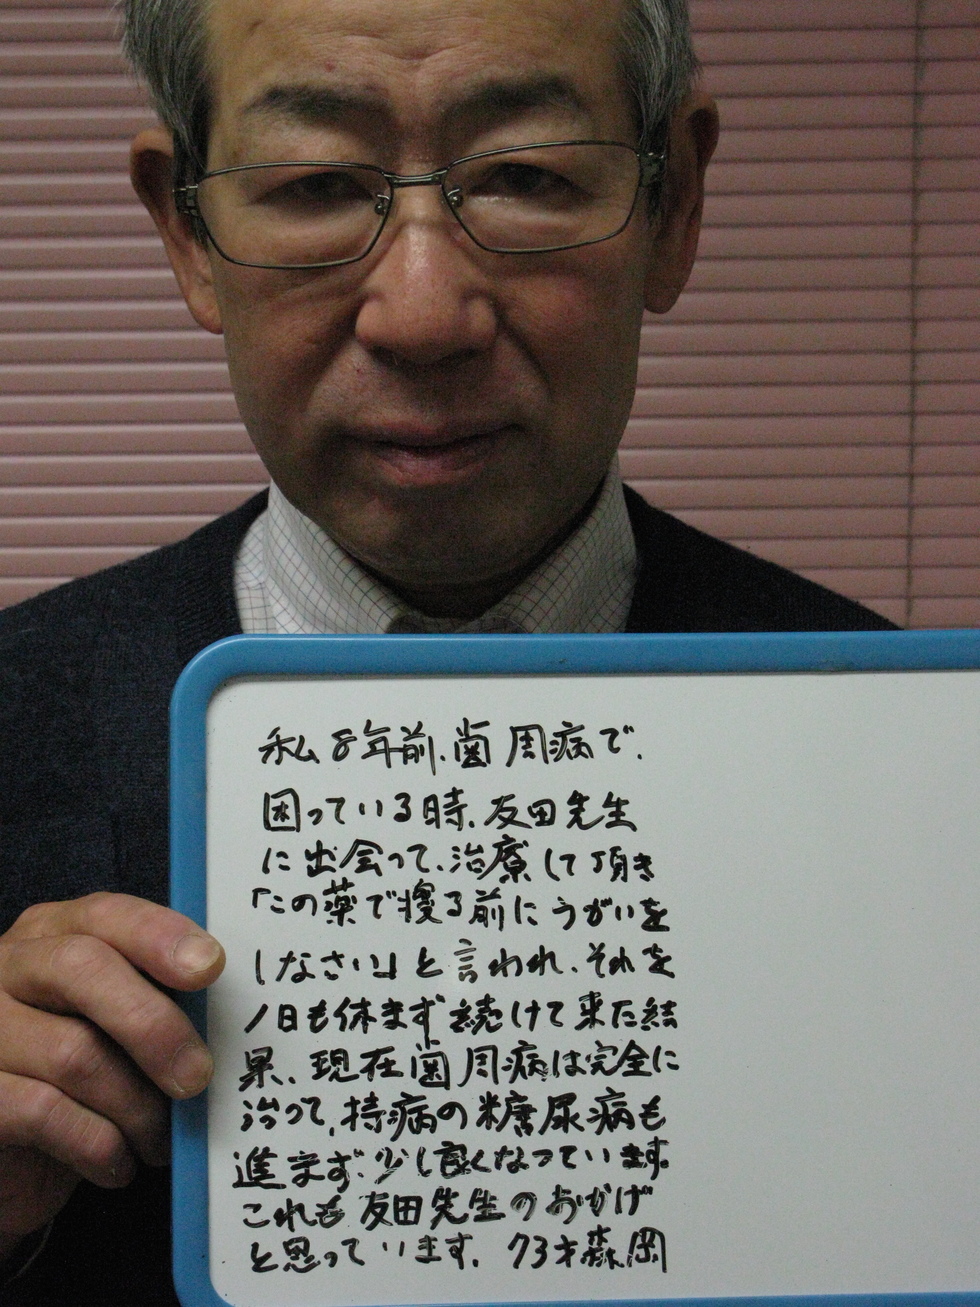 私8年前、歯周病で、
困っている時、友田先生
に出会って、治療して頂き
「この薬で寝る前にうがいを
しなさい」と言われ、それを
1日も休まず続けて来た結
果、現在歯周病は完全に
治って、持病の糖尿病も
進まず、少し良くなっています。
これも友田先生のおかげ
と思っています。73才森岡